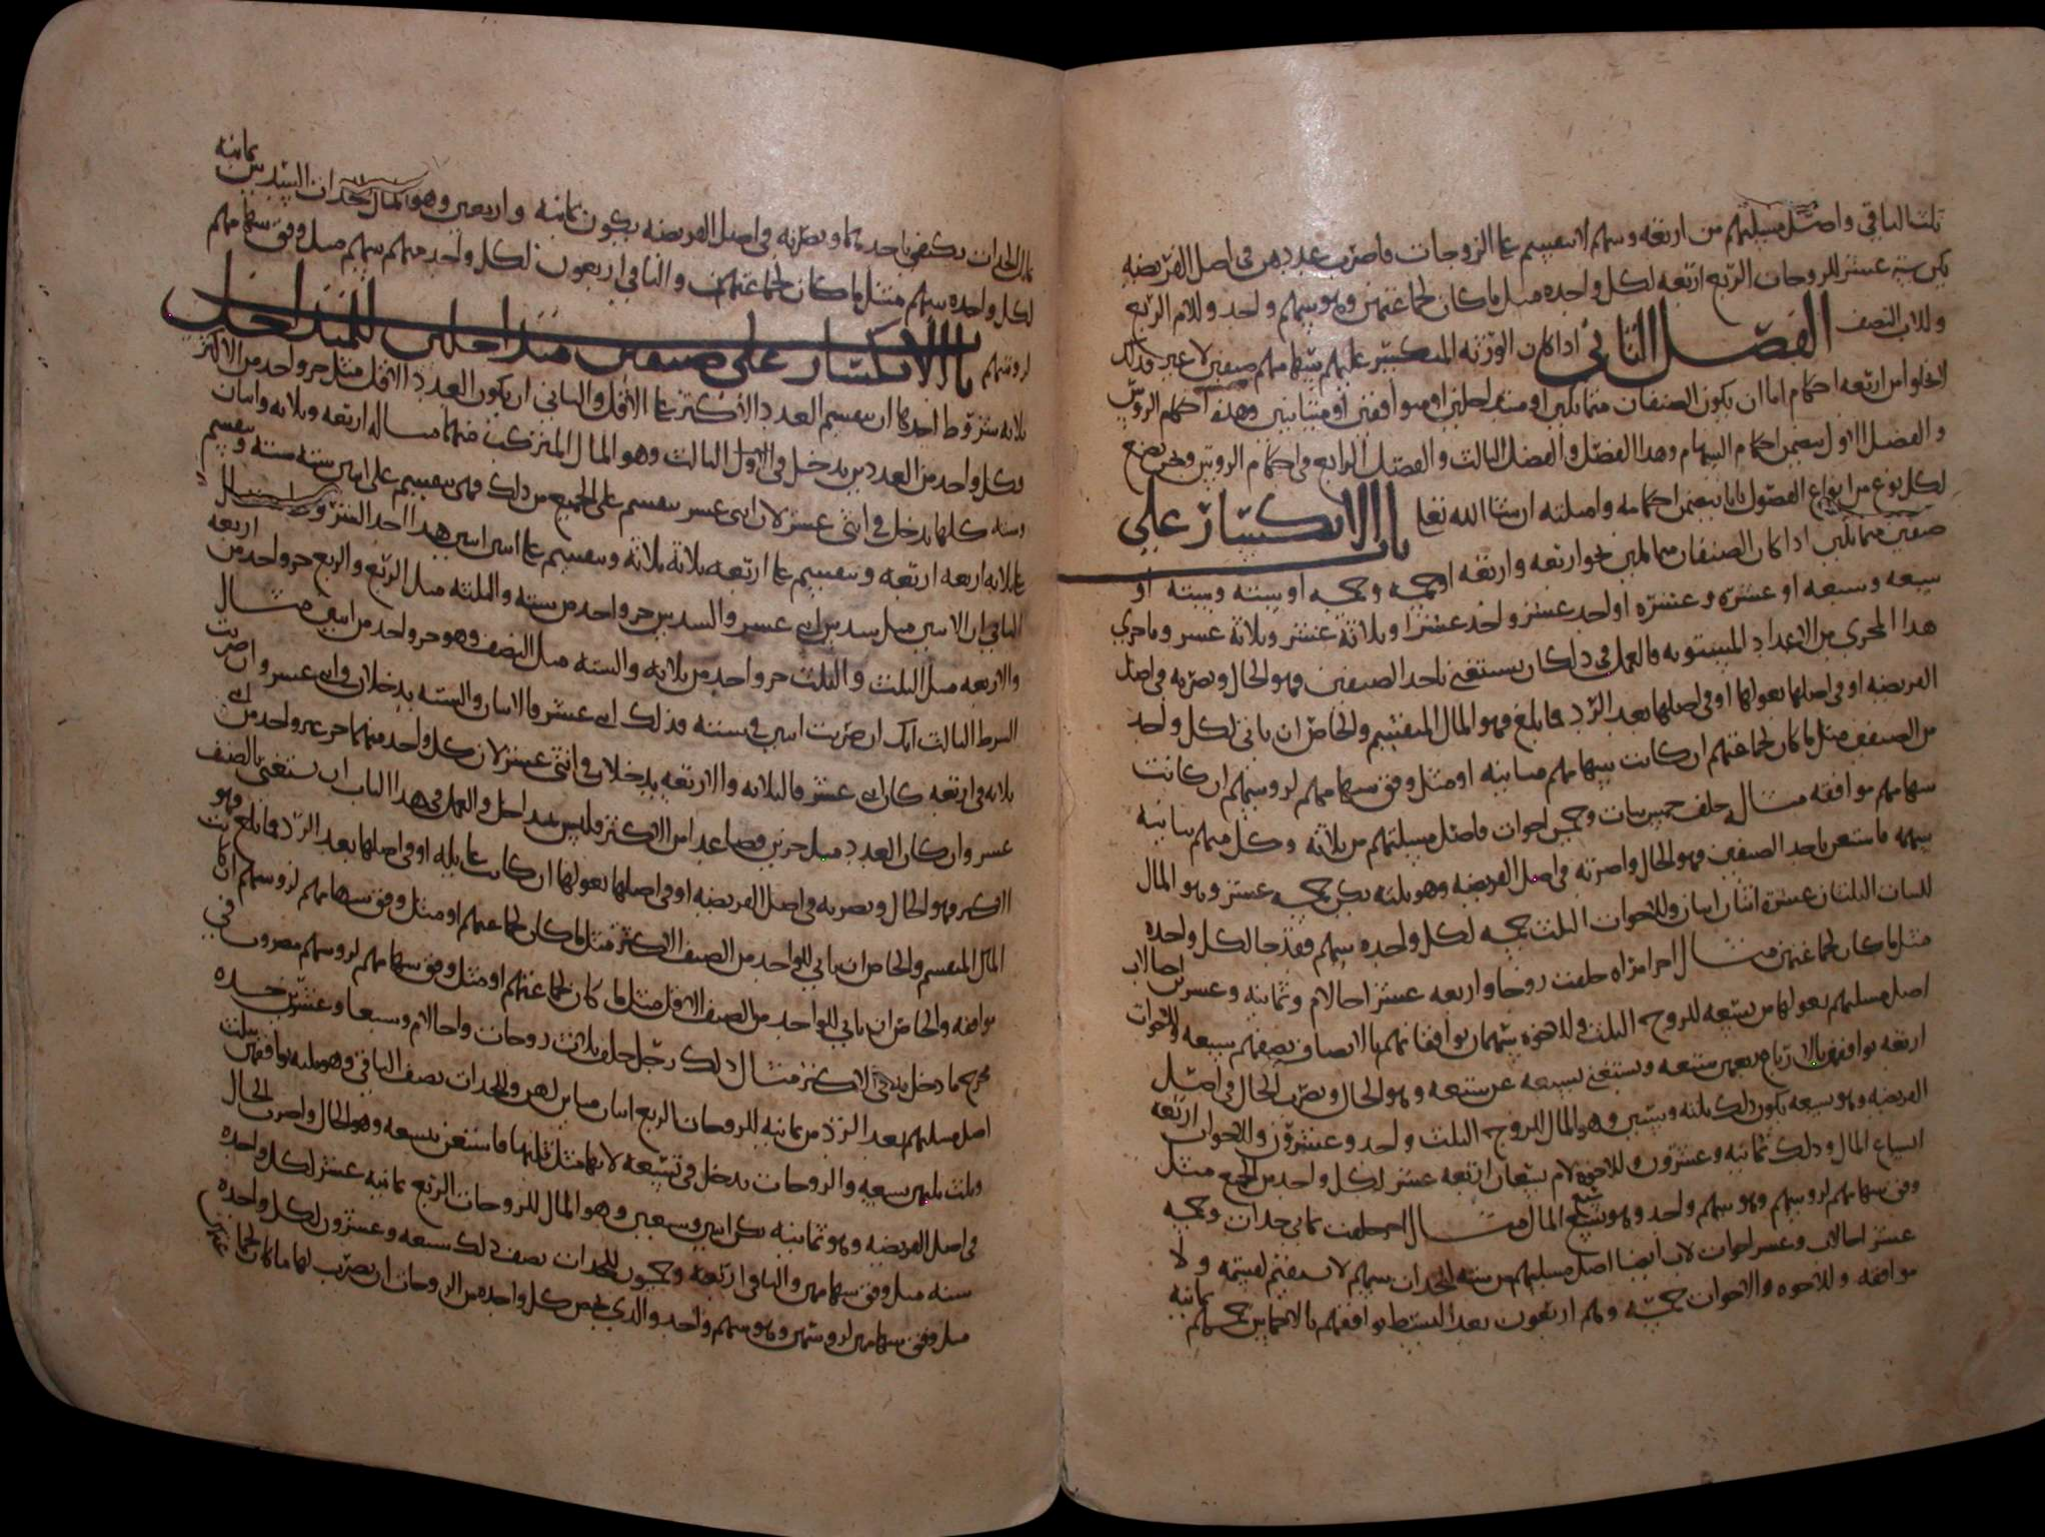 ثلث الباقي واصل مسيلتهم من اربعه وسهم لا ينقسم على الزوجات فاضرب عددهن في اصل الفريضه
يكن ستة عشر للزوجات الربع اربعه لكل واحده مثل ما كان لجماعتهن وهو سهم واحد وللام الربع
وللاب النصف الفصل الثاني اذا كان الورثه المنكسر عليهم سهامهم صنفين لا غير فذلك
لا يخلوا من اربعه احكام اما ان يكون الصنفان متماثلين او متداخلين او متوافقين او متباينين وهذه احكام الروس
والفصل الاول يتضمن احكام السهام وهذا الفصل والفصل الثالث والفصل الرابع في احكام الروس ونحن نضع
لكل نوع من انواع الفصول بابا يتضمن احكامه وامثلته ان شا الله تعا باب الانكسار على
صنفين متماثلين اذا كان الصنفان متماثلين نحو اربعه واربعه او خمسه وخمسه او سته وسته او
سبعه وسبعه او عشره وعشره او احد عشر واحد عشر او ثلاثة عشر وثلاثة عشر وما جرى
هذا المجرى من الاعداد المستويه فالعمل في ذلك ان يستغنى باحد الصنفين فهو الحال وتضربه في اصل
الفريضه او في اصلها بعولها او في اصلها بعد الرد فما بلغ فهو المال المنقسم والخاص ان ياتي لكل واحد
من الصنفين مثل ما كان لجماعتهم ان كانت سهامهم مباينه او مثل وفق سهامهم لروسهم ان كانت
سهامهم موافقه مثاله خلف خمس بنات وخمس اخوات فاصل مسيلتهم من ثلاثه وكل منهم يباينه
سهمه فاستغن باحد الصنفين فهو الحال واضربه في اصل الفريضه وهو ثلثه يكن خمسه عشر وهو المال
للبنات الثلثان عشرة اثنان اثنان وللاخوات الثلث خمسه لكل واحده سهم فقد جا لكل واحده
مثل ما كان لجماعتهن مثال اخر امراه خلفت زوجا واربعه عشر اخا لام وثمانيه وعشرين اخا لاب
اصل مسيلتهم بعولها من تسعه للزوج الثلث وللاخوه سهمان يوافقانهم بالانصاف نصفهم سبعه وللاخوات
اربعه يوافقهن بالارباع ربعهن سبعه ويستغنى بسبعه عن سبعه وهو الحال ويضرب الحال في اصل
الفريضه وهو تسعه يكون ذلك ثلثه وستين وهو المال للزوج الثلث واحد وعشرون وللاخوات اربعة
اتساع المال وذلك ثمانيه وعشرون وللاخوه لام تسعان اربعه عشر لكل واحد من الجميع مثل
وفق سهامهم لروسهم وهو سهم واحد وهو تسع المال مثال اخر خلفت ثماني جدات وخمسه
عشر اخا لاب وعشر اخوات لاب ايضا اصل مسيلتهم من سته للجدات سهم لا ينقسم لقسمه ولا
موافقه وللاخوه والاخوات خمسه وهم اربعون بعد البسط يوافقهم بالاخماس خمسهم ثمانيه
ثمانيه
مثل الجدات يكتفى باحدهما ويضربه في اصل الفريضه يكون ثمانيه واربعين وهو المال للجدات السدس
لكل واحده سهم مثل ما كان لجماعتهن والباقي اربعون لكل واحد منهم سهم مثل وفق سهامهم
لروسهم باب الانكسار على صنفين متداخلين للمتداخل
ثلاثه شروط احدها ان ينقسم العدد الاكثر على الاقل والثاني ان يكون العدد الاقل مثل جزو واحد من الاكثر
وكل واحد من العددين يدخل في الاول الثالث وهو المال المتركب منهما مثاله اربعه وثلاثه واثنان
وسته كلها يدخل في اثنى عشر لان اثنى عشر ينقسم على الجميع من ذلك فهي تنقسم على اثنين سته سته وتنقسم
على ثلاثه اربعه اربعه وتنقسم على اربعه ثلاثة ثلاثة وتنقسم على سته اثنين اثنين هذا احد الشروط ومثال
الثاني ان الاثنين مثل سدس اثنى عشر والسدس جزو واحد من سته والثلثه مثل الربع والربع جزو واحد من اربعه
والاربعه مثل الثلث والثلث جزو واحد من ثلاثه والسته مثل النصف وهو جزو واحد من اثنين مثال
الشرط الثالث انك ان ضربت اثنين في سته فذلك اثنى عشر فالاثنان والسته يدخلان في اثنى عشر وان ضربت
ثلاثه في اربعه كان اثنى عشر فالثلاثه والاربعه يدخلان في اثنى عشر لان كل واحد منهما جزو واحد من اثنى
عشر وان كان العدد مثل جزين فصاعدا من الاكثر فليس بمتداخل والعمل في هذا الباب ان يستغنى بالصنف
الاكثر فهو الحال ويضربه في اصل الفريضه او في اصلها بعولها ان كانت عايله او في اصلها بعد الرد فما بلغ فهو
المال المنقسم والخاص ان ياتي للواحد من الصنف الاكثر مثل ما كان لجماعتهم او مثل وفق سهامهم لروسهم ان كانت
موافقه والخاص ان ياتي للواحد من الصنف الاقل مثل ما كان لجماعتهم او مثل وفق سهامهم لروسهم مضروب في
مخرج ما دخل به في الاكثر مثال ذلك رجل خلف ثلاث زوجات واخا لام وسبعا وعشرين جده
اصل مسيلتهم بعد الرد من ثمانيه للزوجات الربع اثنان مباين لهن وللجدات نصف الباقي وهو ثلثه يوافقهن بثلث
وثلث ثلثهن تسعه والزوجات يدخل في تسعه لانها مثل ثلثها فاستغن بتسعه وهو الحال واضرب الحال
في اصل الفريضه وهو ثمانيه يكن اثنين وسبعين وهو المال للزوجات الربع ثمانيه عشر لكل واحده
سته مثل وفق سهامهن والباقي اربعه وخمسون للجدات نصف ذلك سبعه وعشرون لكل واحده
مثل وفق سهامهن لروسهن وهو سهم واحد والذي يخص كل واحده من الزوجات ان يضرب لها ما كان لجماعتهن